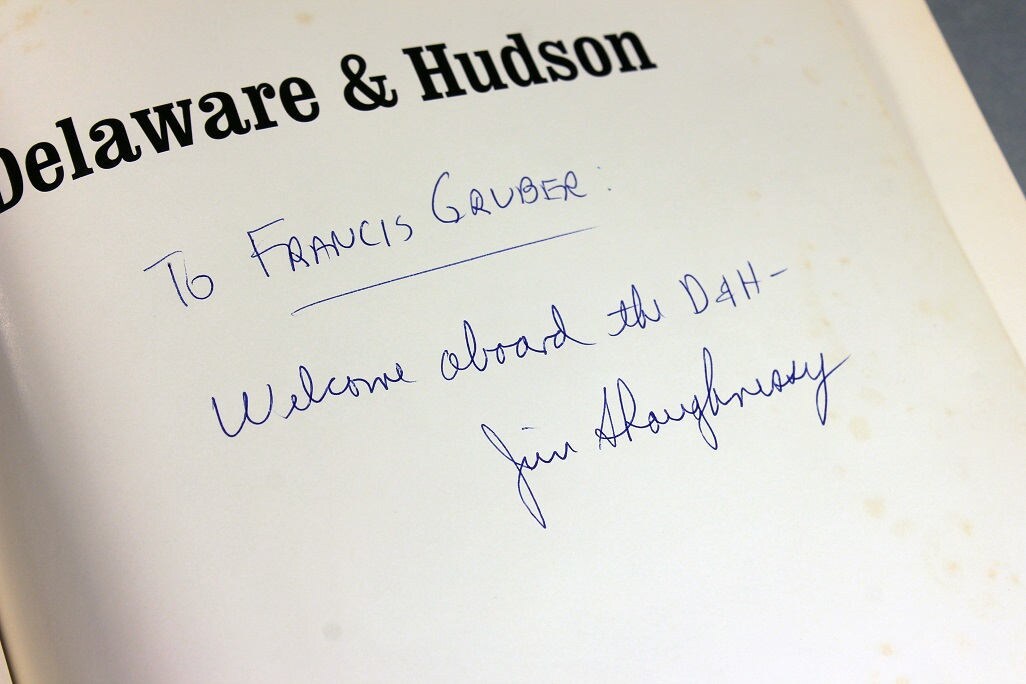 Delaware & Hudson
To FRANCIS GRUBER:
Welcome aboard the D&H-
Jim Shaughnessy